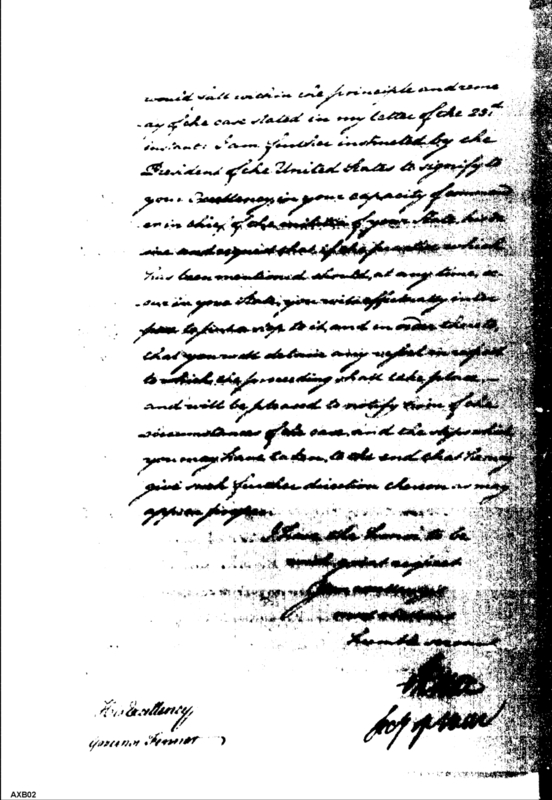 would fall within the principle and reme
dy of the case stated in my letter of the 23.d
instant: I am further instructed by the
President of the United States to signify to
your Excellency, in your capacity of command
er in chief of the militia of your State, his de
sire and request that if the practice which
has been mentioned should, at any time, oc
cur in your State, you will effectually inter
pose to put a stop to it, and in order thereto,
that you will detain any vessel in respect
to which, the proceeding shall take place
and will be pleased to notify him of the
circumstances of the case, and the steps which
you may have taken, to the end that he may
give such further direction thereon as may
appear proper.
I have the honor to be
with great respect
Your Excellency's
most obedient
humble servant
Sec.y of War
His Excellency
Governor Fenner
AXB02